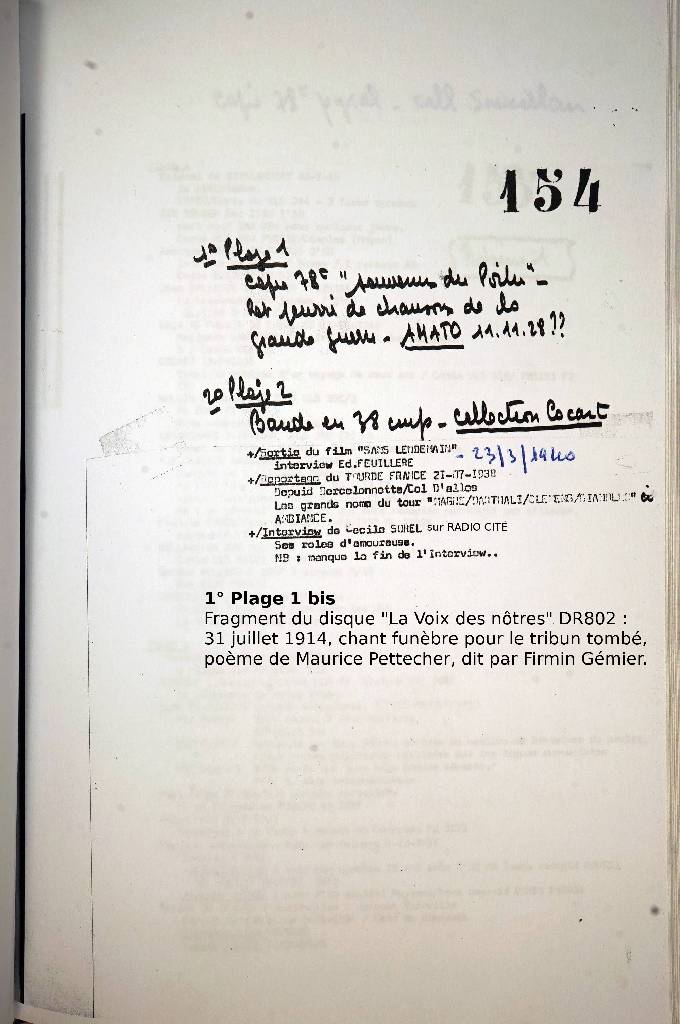 154
1° Plage 1
Copie 78t "souvenirs du Poilu" -
Pot pourri de chansons de la
grande guerre - AMATO 11.11.28??
2° Plage 2
Bande en 38 cmps - Collection Cocart
+/Sortie du film "SANS LENDEMAIN" - 23/3/1940
interview Ed.FEUILLERE
+/Reportage du TOURDE FRANCE 21-07-1938
Depuid Bercelonnette/Col D'allos
Les grands noms du tour
AMBIANCE.
+/Interview de Cecile SOREL sur RADIO CITÉ
Ses roles d'amoureuse.
NB : manque la fin de l'Interview..
1° Plage 1 bis
Fragment du disque "La Voix des nôtres" DR802 :
31 juillet 1914, chant funèbre pour le tribun tombé,
poème de Maurice Pettecher, dit par Firmin Gémier.